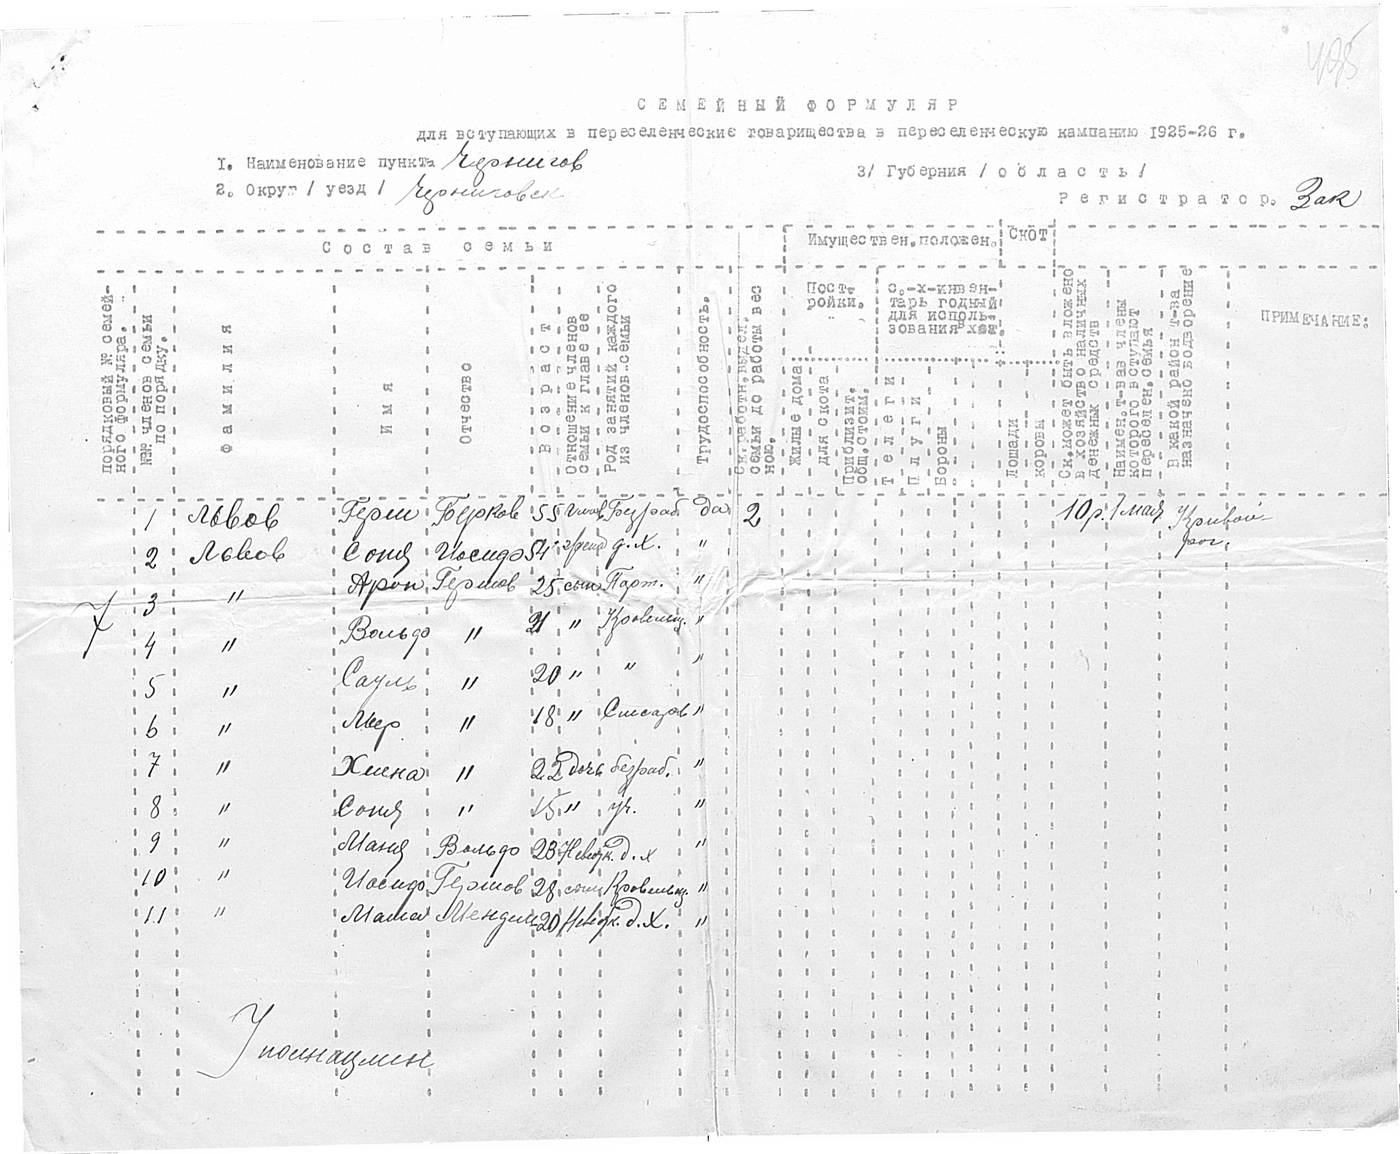 495
СЕМЕЙНЫЙ ФОРМУЛЯР
для вступающих в переселенческие товарищества в переселенческую кампанию 1925-26 г.
1. Наименование пункта Чернигов
3/ Губерния /область/
2. Округ / уезд / Черниговск
Регистратор. Зак
Состав семьи
Имуществен. положен.
СКОТ
порядковый № семейного формуляра.
№№ членов семьи по порядку.
Фамилия
Имя
Отчество
Возраст
Отношение членов семьи к главе ее
Род занятий каждого из членов семьи
Трудоспособность.
Ск. работн. выдел. семьи до работы весною.
Постройки.
с.-х-инвентарь годный для использования в хоз.
Жилые дома
для скота
Приблизит. общ. стоим.
Телеги
Плуги
Бороны
Лошади
коровы
Ск. может быть вложено в хозяйство наличных денежных средств
Наимен. т-ва в члены которого вступают переселен. семья
В какой район т-ва назначено водворение
ПРИМЕЧАНИЕ:
1 Львов Герш Берков 55 Глав. Безраб да 2 10 р. 1 мая Кривой-рог.
2 Львов Соня Иосифо 54 д. х. "
7
3 " Арон Гершов 25 сын Порт. "
4 " Вольфо " 21 " Кровельщ. "
5 " Сауль " 20 " " "
6 " Меер " 18 " Слесарь "
7 " Хиена " 22 дочь безраб. "
8 " Соня " 15 " уч. "
9 " Маня Вольфо 23 Невестк. д. х "
10 " Иосифо Гершов 28 сын Кровельщ. "
11 " Маша Мендель 20 Невестк. д. х. "
Уполнацмен